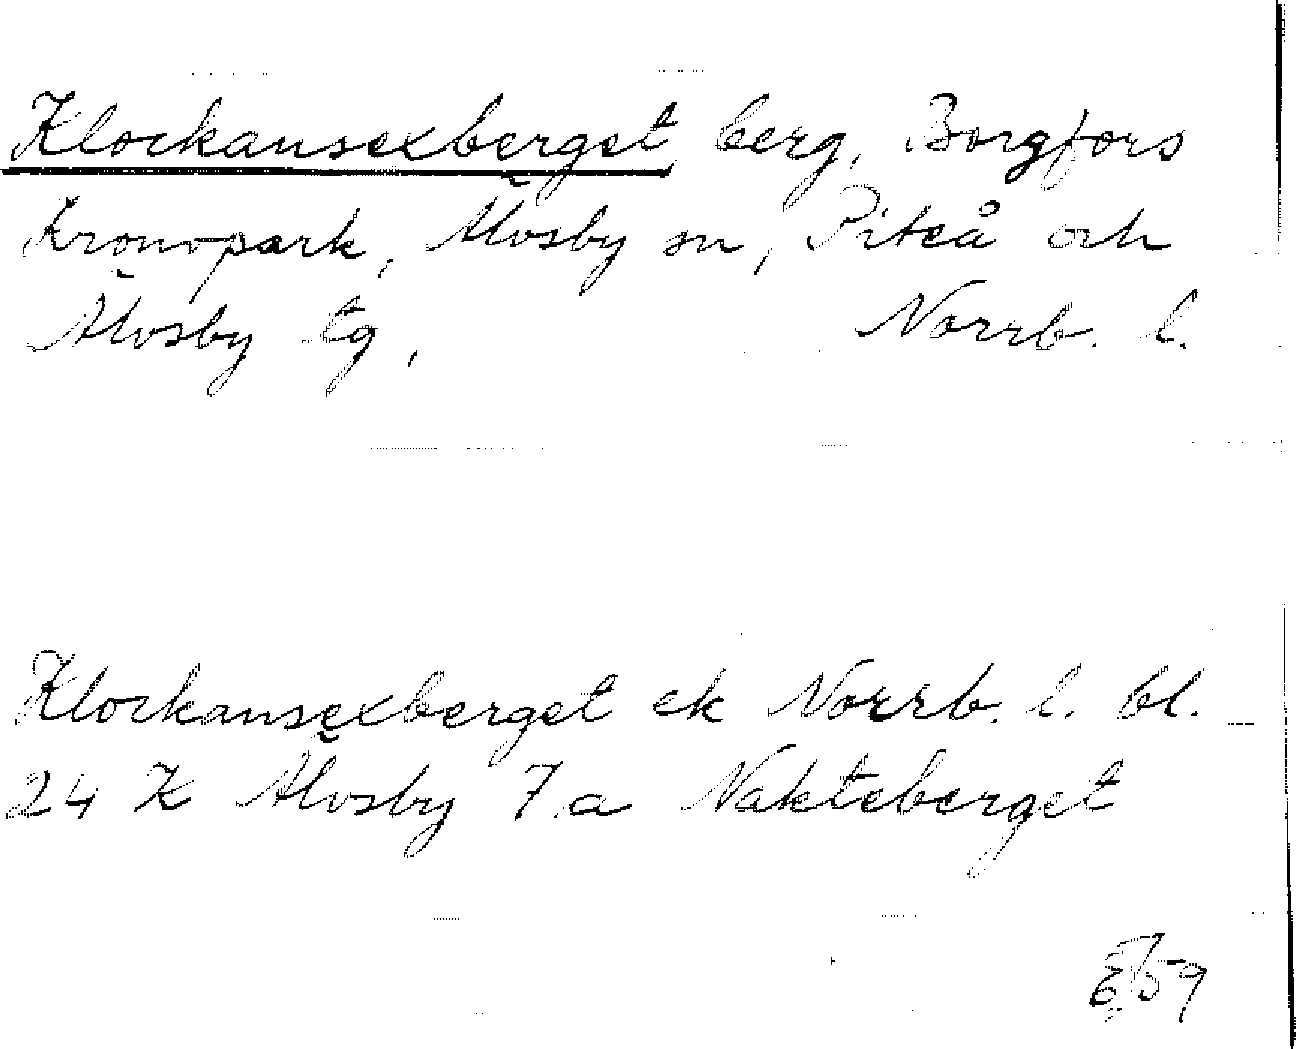 Klockansexberget, berg, Borgfors
Kronopark, Älvsby sn, Piteå och
Älvsby tg, Norrb. l.
Klockansexberget ek Norrb. l. bl.
24 K Älvsby 7 a Nakteberget